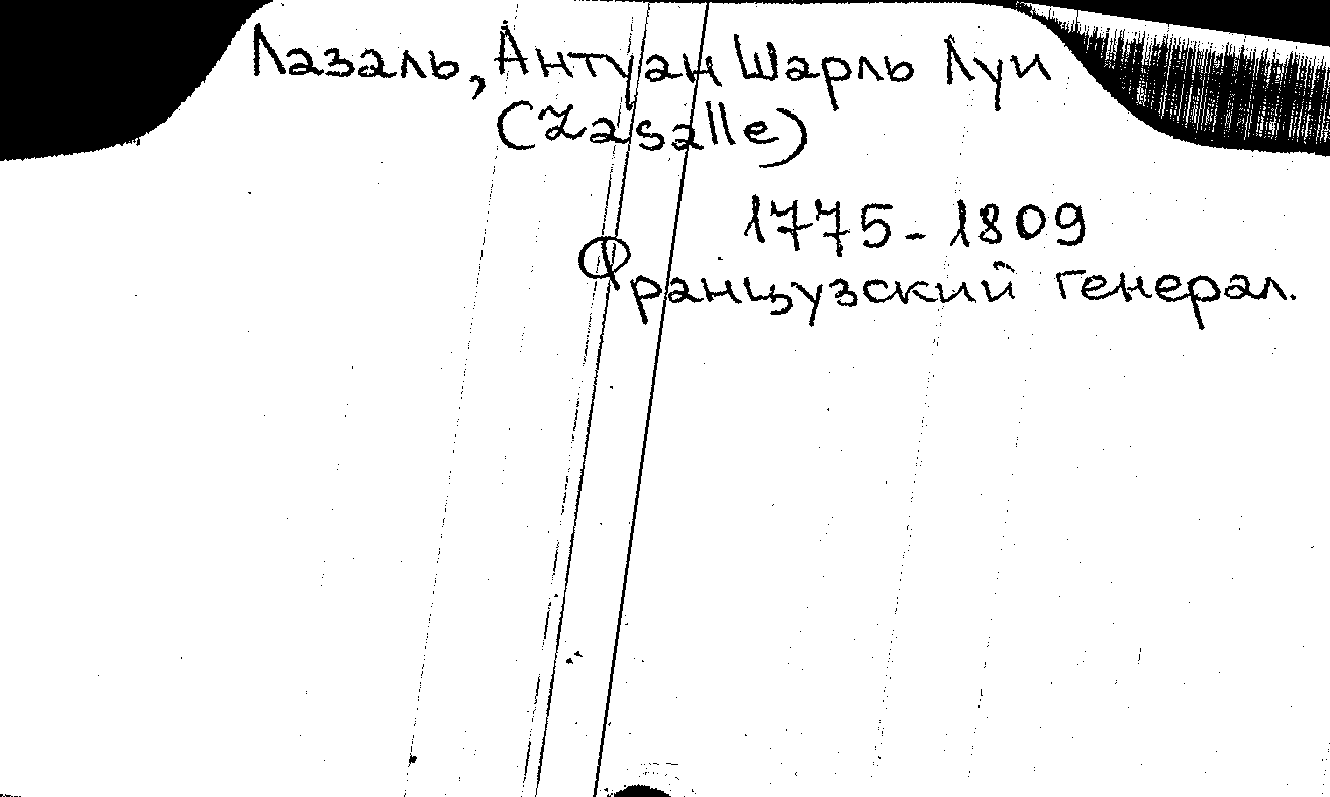 Лазаль, Антуан Шарль Луи
(Lasalle)
1775-1809
Французский генерал.